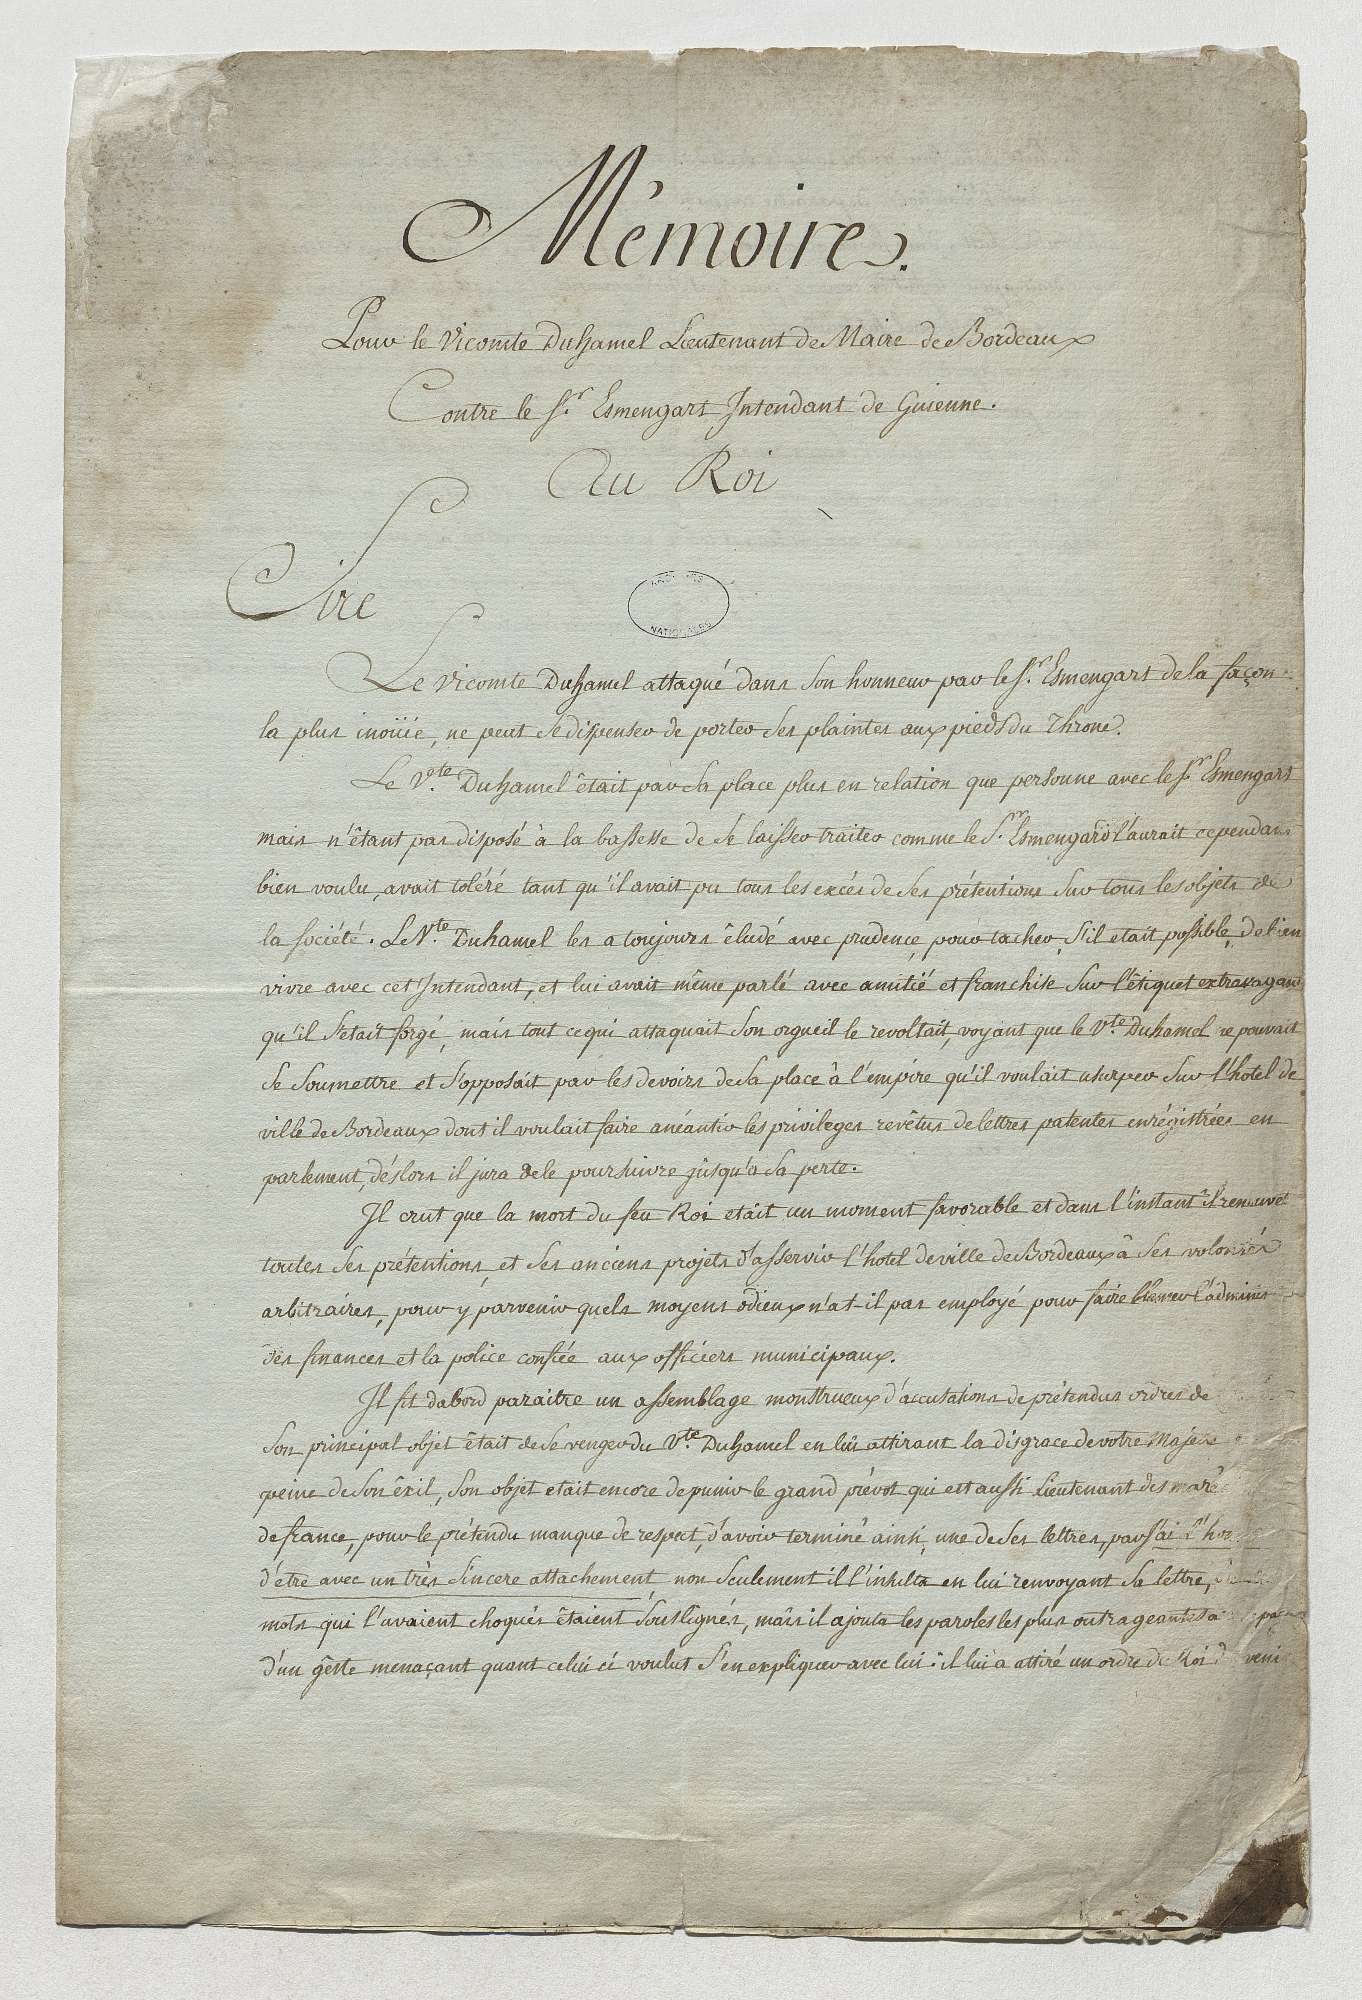 Mémoire.
Pour le Vicomte Duhamel Lieutenant de Maire de Bordeaux
Contre le Sr. Esmengart Intendant de Guienne.
Au Roi
Sire
ARCHIVES
NATIONALES
Le Vicomte Duhamel attaqué dans son honneur par le Sr. Esmengart de la façon
la plus inoüie, ne peut se dispenser de porter ses plaintes aux pieds du Throne.
Le Vte. Duhamel êtait par sa place plus en relation que personne avec le Sr. Esmengart
mais n'êtant pas disposé à la bassesse de se laisser traiter comme le Sr. Esmengard l'aurait cependant
bien voulu, avait toléré tant qu'il avait pu tous les excés de ses prétentions sur tous les objets de
la société. Le Vte. Duhamel les a toujours êludé avec prudence, pour tacher, s'il etait possible, de bien
vivre avec cet Intendant, et lui avait même parlé avec amitié et franchise sur l'êtiquet extravagant
qu'il s'etait forgé, mais tout ce qui attaquait son orgueil le revoltait, voyant que le Vte. Duhamel ne pouvait
se soumettre et s'opposait par les devoirs de sa place à l'empire qu'il voulait usurper sur l'hotel de
ville de Bordeaux dont il voulait faire anéantir les privileges revêtus de lettres patentes enrégistrées en
parlement, dèslors il jura de le poursuivre jusqu'à sa perte.
Il crut que la mort du feu Roi etait un moment favorable et dans l'instant il renouvel
toutes ses prétentions, et ses anciens projets d'asservir l'hotel de ville de Bordeaux à ses volontés
arbitraires, pour y parvenir quels moyens odieux n'at-il pas employé pour faire blamer l'adminis
des finances et la police confiée aux officiers municipaux.
Il fit dabord paraitre un assemblage monstrueux d'accusations de prétendus ordres de
son principal objet êtait de se venger du Vte. Duhamel en lui attirant la disgrace de votre Majesté
peine de son êxil, son objet etait encore de punir le grand prévot qui est aussi Lieutenant des maré
de france, pour le prétendu manque de respect, d'avoir terminé ainsi, une de ses lettres, par j'ai l'hon
d'etre avec un très sincere attachement, non seulement il l'insulta en lui renvoyant sa lettre,
mots qui l'avaient choqués êtaient souslignés, mais il ajouta les paroles les plus outrageantes
d'un gèste menaçant quant celui ci voulut s'en expliquer avec lui: il lui a attiré un ordre du Roi de veni